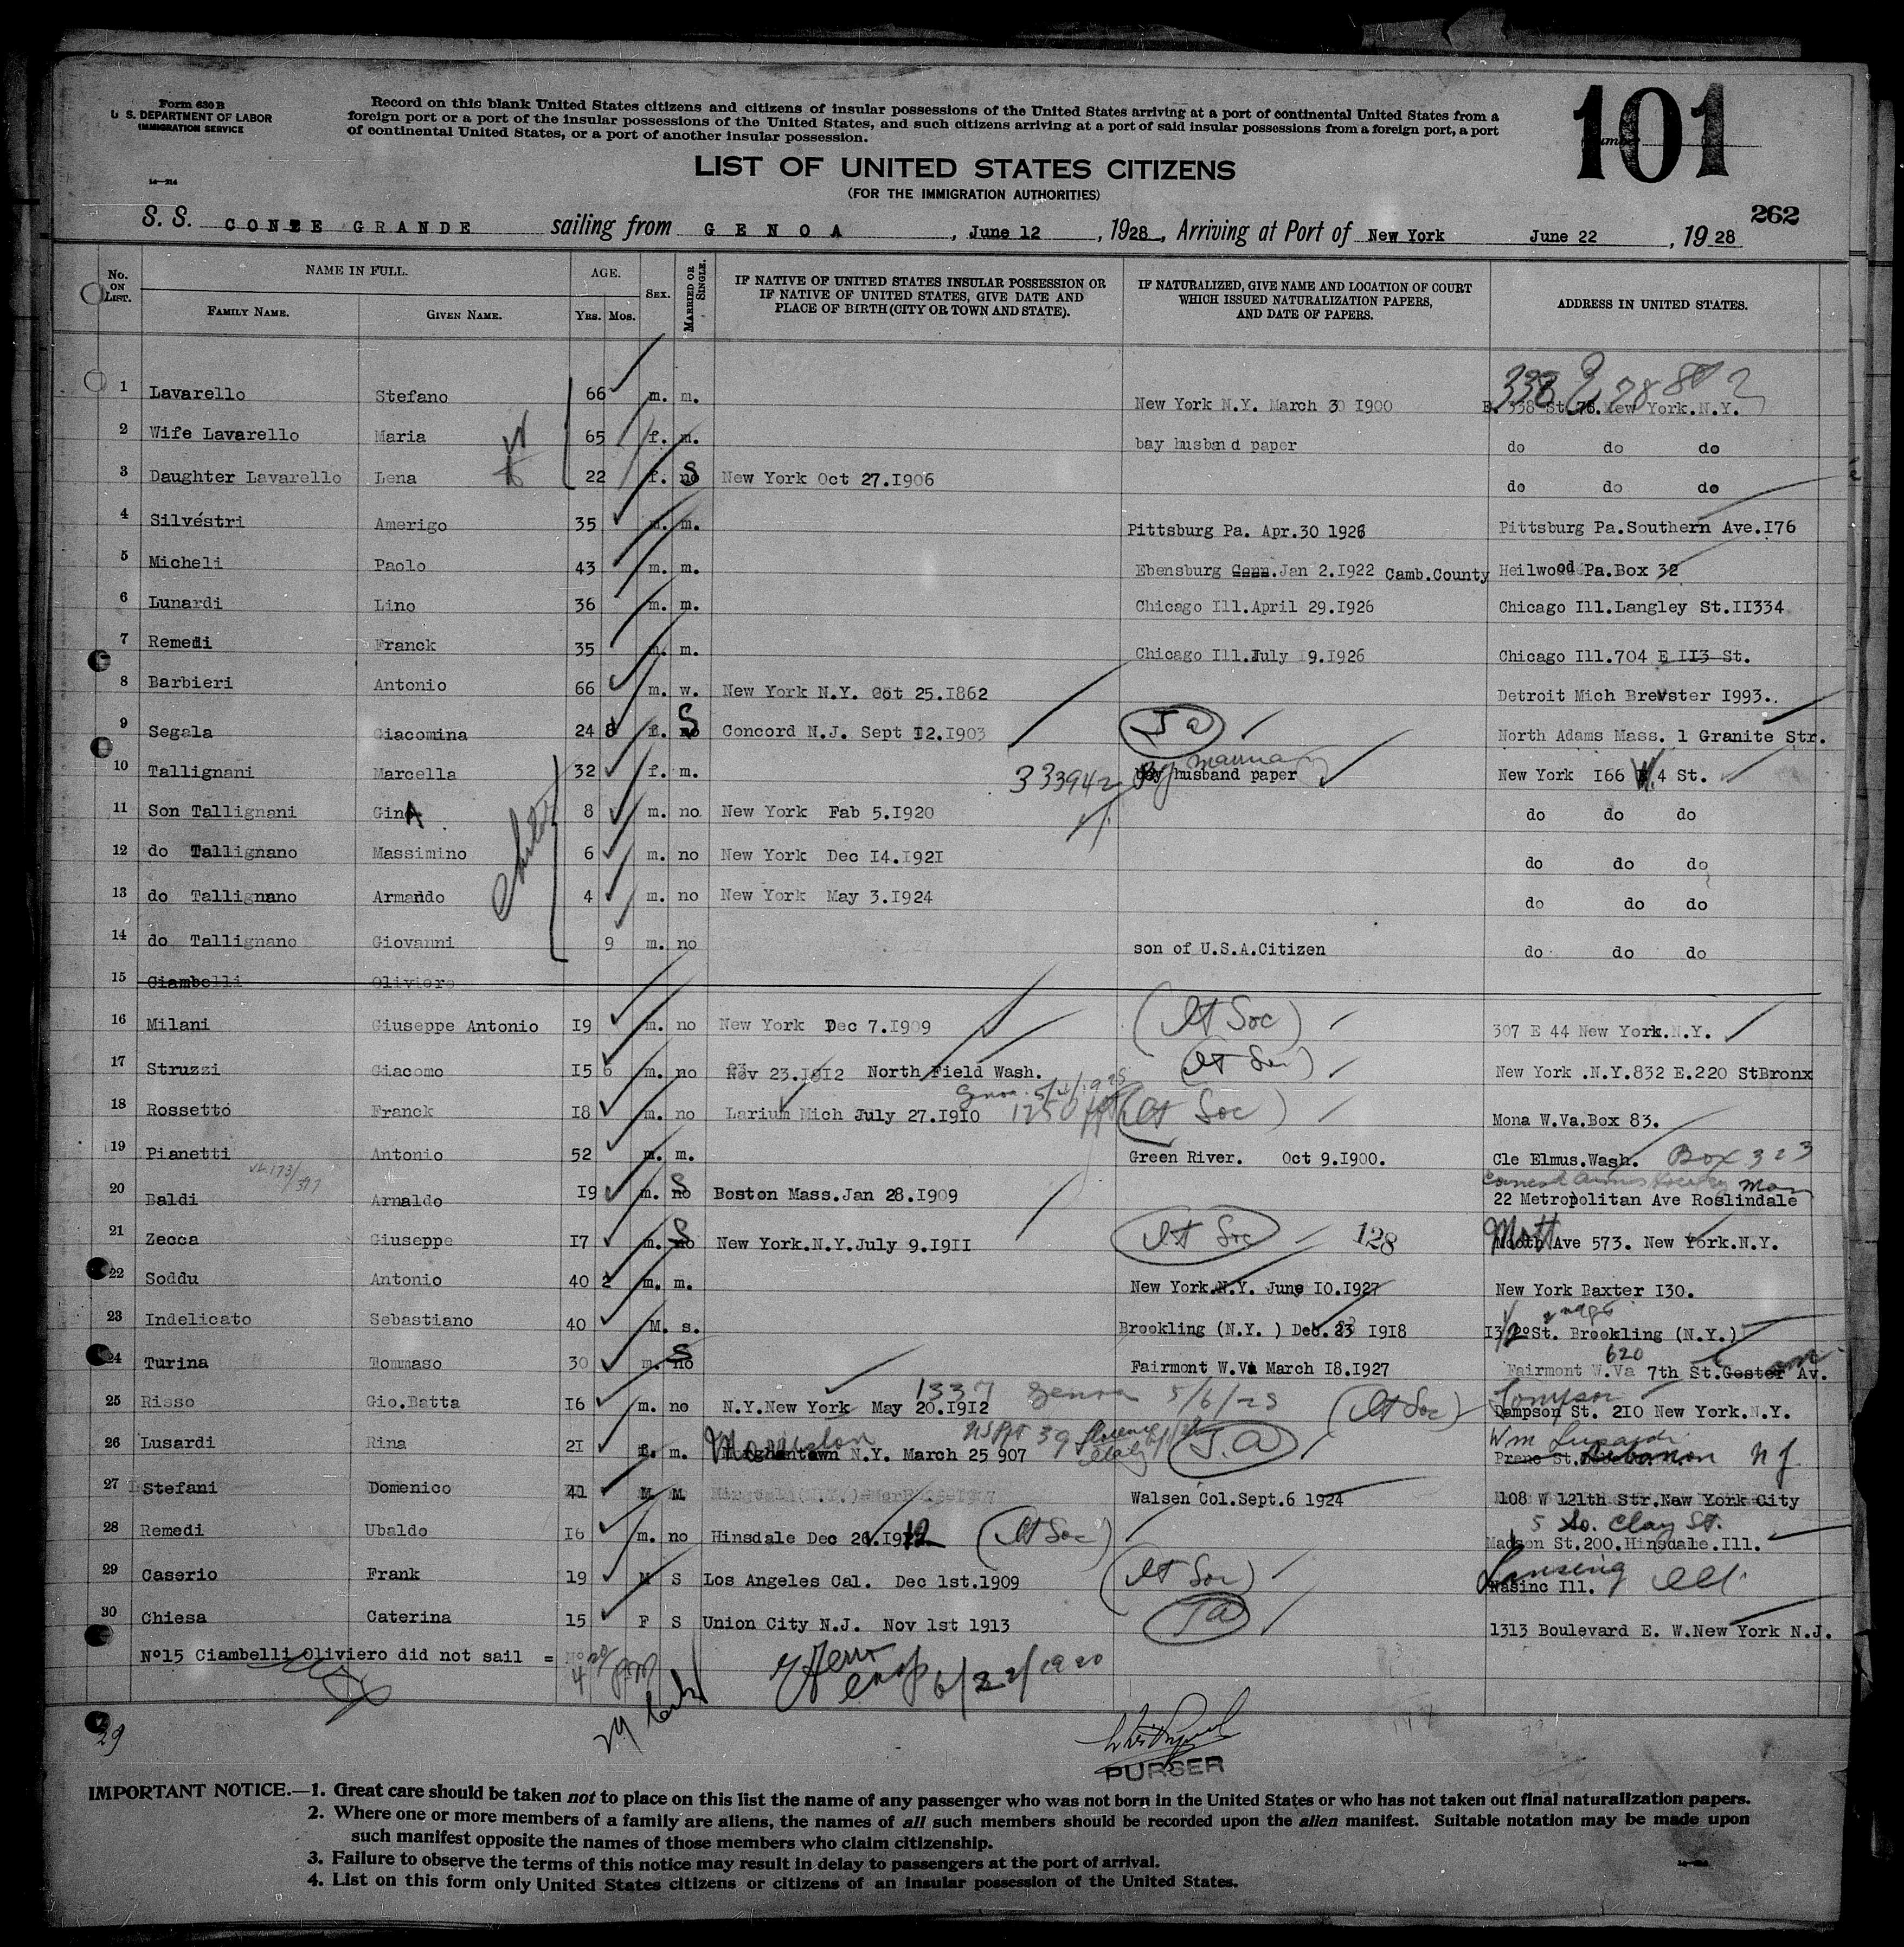 Form 630 B
U. S. DEPARTMENT OF LABOR
IMMIGRATION SERVICE
Record on this blank United States citizens and citizens of insular possessions of the United States arriving at a port of continental United States from a
foreign port or a port of the insular possessions of the United States, and such citizens arriving at a port of said insular possessions from a foreign port, a port
of continental United States, or a port of another insular possession.
101
LIST OF UNITED STATES CITIZENS
(FOR THE IMMIGRATION AUTHORITIES)
262
S. S. CONTE GRANDE sailing from GENOA, June 12, 1928, Arriving at Port of New York June 22, 1928
No. ON LIST. NAME IN FULL. FAMILY NAME. GIVEN NAME. AGE. YRS. MOS. SEX. MARRIED OR SINGLE. IF NATIVE OF UNITED STATES INSULAR POSSESSION OR IF NATIVE OF UNITED STATES, GIVE DATE AND PLACE OF BIRTH (CITY OR TOWN AND STATE). IF NATURALIZED, GIVE NAME AND LOCATION OF COURT WHICH ISSUED NATURALIZATION PAPERS, AND DATE OF PAPERS. ADDRESS IN UNITED STATES.
1 Lavarello Stefano 66 m. m. New York N.Y. March 30 1900 E. 338 St 78. New York.N.Y.
2 Wife Lavarello Maria 65 f. m. bay husband paper do do do
3 Daughter Lavarello Lena 22 f. no S New York Oct 27.1906 do do do
4 Silvéstri Amerigo 35 m. m. Pittsburg Pa. Apr.30 1926 Pittsburg Pa.Southern Ave.I76
5 Micheli Paolo 43 m. m. Ebensburg Conn.Jan 2.1922 Camb.County Heilwood Pa.Box 32
6 Lunardi Lino 36 m. m. Chicago Ill.April 29.1926 Chicago Ill.Langley St.II334
7 Remedi Franck 35 m. m. Chicago Ill.July 19.1926 Chicago Ill.704 E II3 St.
8 Barbieri Antonio 66 m. w. New York N.Y. Oct 25.1862 Detroit Mich Brewster I993.
9 Segala Giacomina 24 8 f. no S Concord N.J. Sept 12.1903 J a North Adams Mass. 1 Granite Str.
10 Tallignani Marcella 32 f. m. 333942 By husband paper New York I66 W. 4 St.
11 Son Tallignani Gino A 8 m. no New York Fab 5.1920 do do do
12 do Tallignano Massimino 6 m. no New York Dec I4.192I do do do
13 do Tallignano Armando 4 m. no New York May 3.1924 do do do
14 do Tallignano Giovanni 9 m. no son of U.S.A.Citizen do do do
15 Ciambelli Oliviero
16 Milani Giuseppe Antonio I9 m. no New York Dec 7.1909 (It Soc) 307 E 44 New York.N.Y.
17 Struzzi Giacomo I5 6 m. no Nov 23.1912 North Field Wash. New York .N.Y.832 E.220 StBronx
18 Rossetto Franck I8 m. no Larium Mich July 27.1910 (It Soc) Mona W.Va.Box 83.
19 Pianetti Antonio 52 m. m. Green River. Oct 9.1900. Cle Elmus.Wash. Box 323
20 Baldi Arnaldo I9 m. no S Boston Mass.Jan 28.1909 22 Metropolitan Ave Roslindale
21 Zecca Giuseppe I7 m. no S New York.N.Y.July 9.I9II It Soc 128 Mott Ave 573. New York.N.Y.
22 Soddu Antonio 40 2 m. m. New York.N.Y. June 10.1927 New York Baxter I30.
23 Indelicato Sebastiano 40 M. s. Brookling (N.Y. ) Dec. 23 1918 St. Brookling (N.Y.)
24 Turina Tommaso 30 m. no S Fairmont W.Va March I8.1927 Fairmont W.Va 620 7th St.Gaster Av.
25 Risso Gio.Batta I6 m. no N.Y.New York May 20.1912 1337 Genoa 5/6/23 (It Soc) Dampson St. 210 New York.N.Y. Tompson
26 Lusardi Rina 2I f. m. N.Y. March 25 907 J.a Wm Lusardi Lebanon N J.
27 Stefani Domenico 41 M M Walsen Col.Sept.6 1924 108 W 121th Str.Naw York City
28 Remedi Ubaldo I6 m. no Hinsdale Dec 26.1912 (It Soc) 5 So. Clay St. Madson St.200.Hinsdale.Ill.
29 Caserio Frank 19 M S Los Angeles Cal. Dec 1st.1909 (It Soc) Nasinc Ill. Lansing Ill.
30 Chiesa Caterina 15 F S Union City N.J. Nov 1st 1913 J a 1313 Boulevard E. W.New York N.J.
N°15 Ciambelli Oliviero did not sail =
29
PURSER
IMPORTANT NOTICE.—1. Great care should be taken not to place on this list the name of any passenger who was not born in the United States or who has not taken out final naturalization papers.
2. Where one or more members of a family are aliens, the names of all such members should be recorded upon the alien manifest. Suitable notation may be made upon
such manifest opposite the names of those members who claim citizenship.
3. Failure to observe the terms of this notice may result in delay to passengers at the port of arrival.
4. List on this form only United States citizens or citizens of an insular possession of the United States.